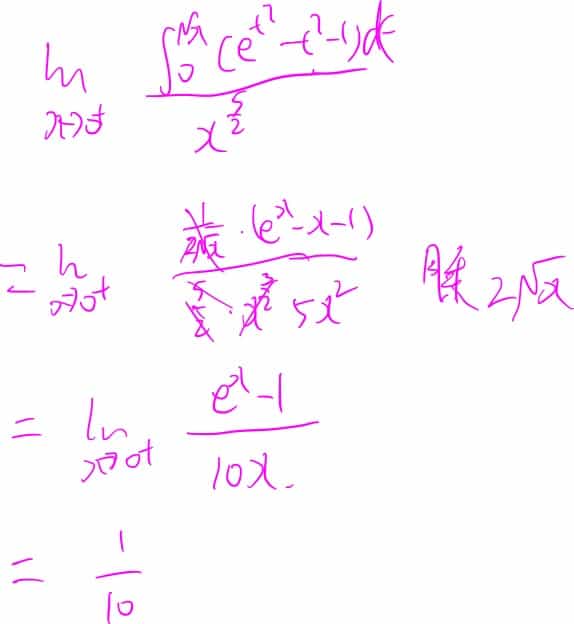 lim x→0⁺ ∫₀^√x (e^t² - t² - 1)dt / x^(5/2)
= lim x→0⁺ 1/(2√x) · (e^x - x - 1) / 5/2 · x^(3/2) 5x² 2√x
= lim x→0⁺ (e^x - 1) / 10x.
= 1/10